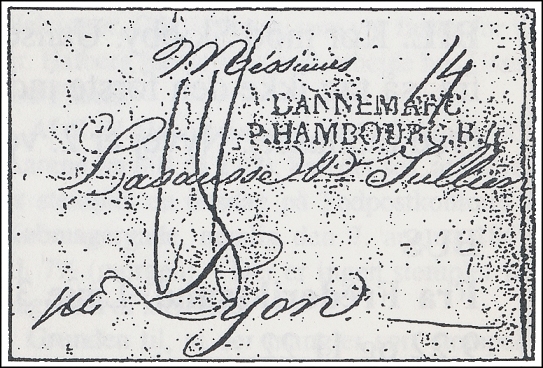 Messieurs
14
DANNEMARC
P.HAMBOURG.B.4
Lasausse & Jullien
Lyon